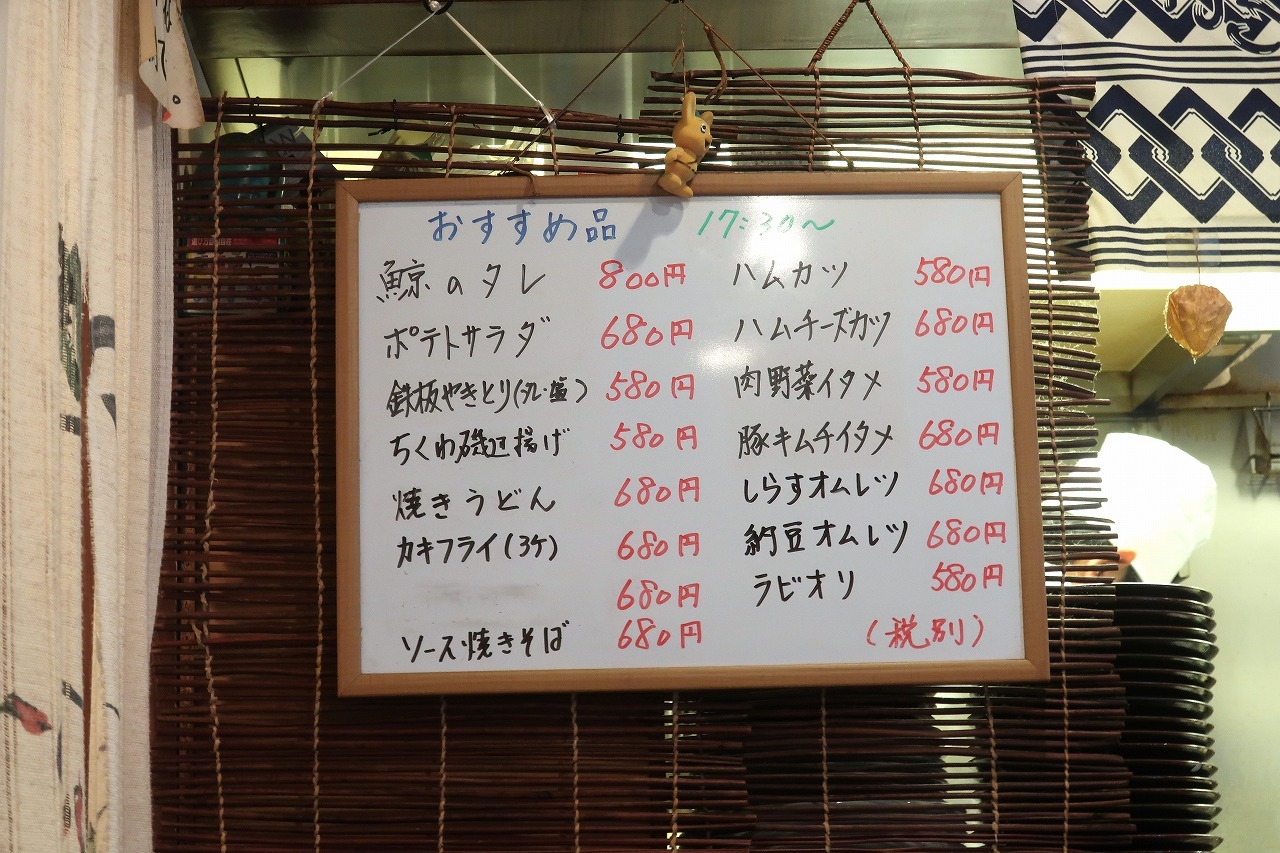 おすすめ品 17:30～
鯨のタレ 800円
ポテトサラダ 680円
鉄板やきとり(タレ・塩) 580円
ちくわ磯辺揚げ 580円
焼きうどん 680円
カキフライ(3ケ) 680円
680円
ソース焼きそば 680円
ハムカツ 580円
ハムチーズカツ 680円
肉野菜イタメ 580円
豚キムチイタメ 680円
しらすオムレツ 680円
納豆オムレツ 680円
ラビオリ 580円
(税別)